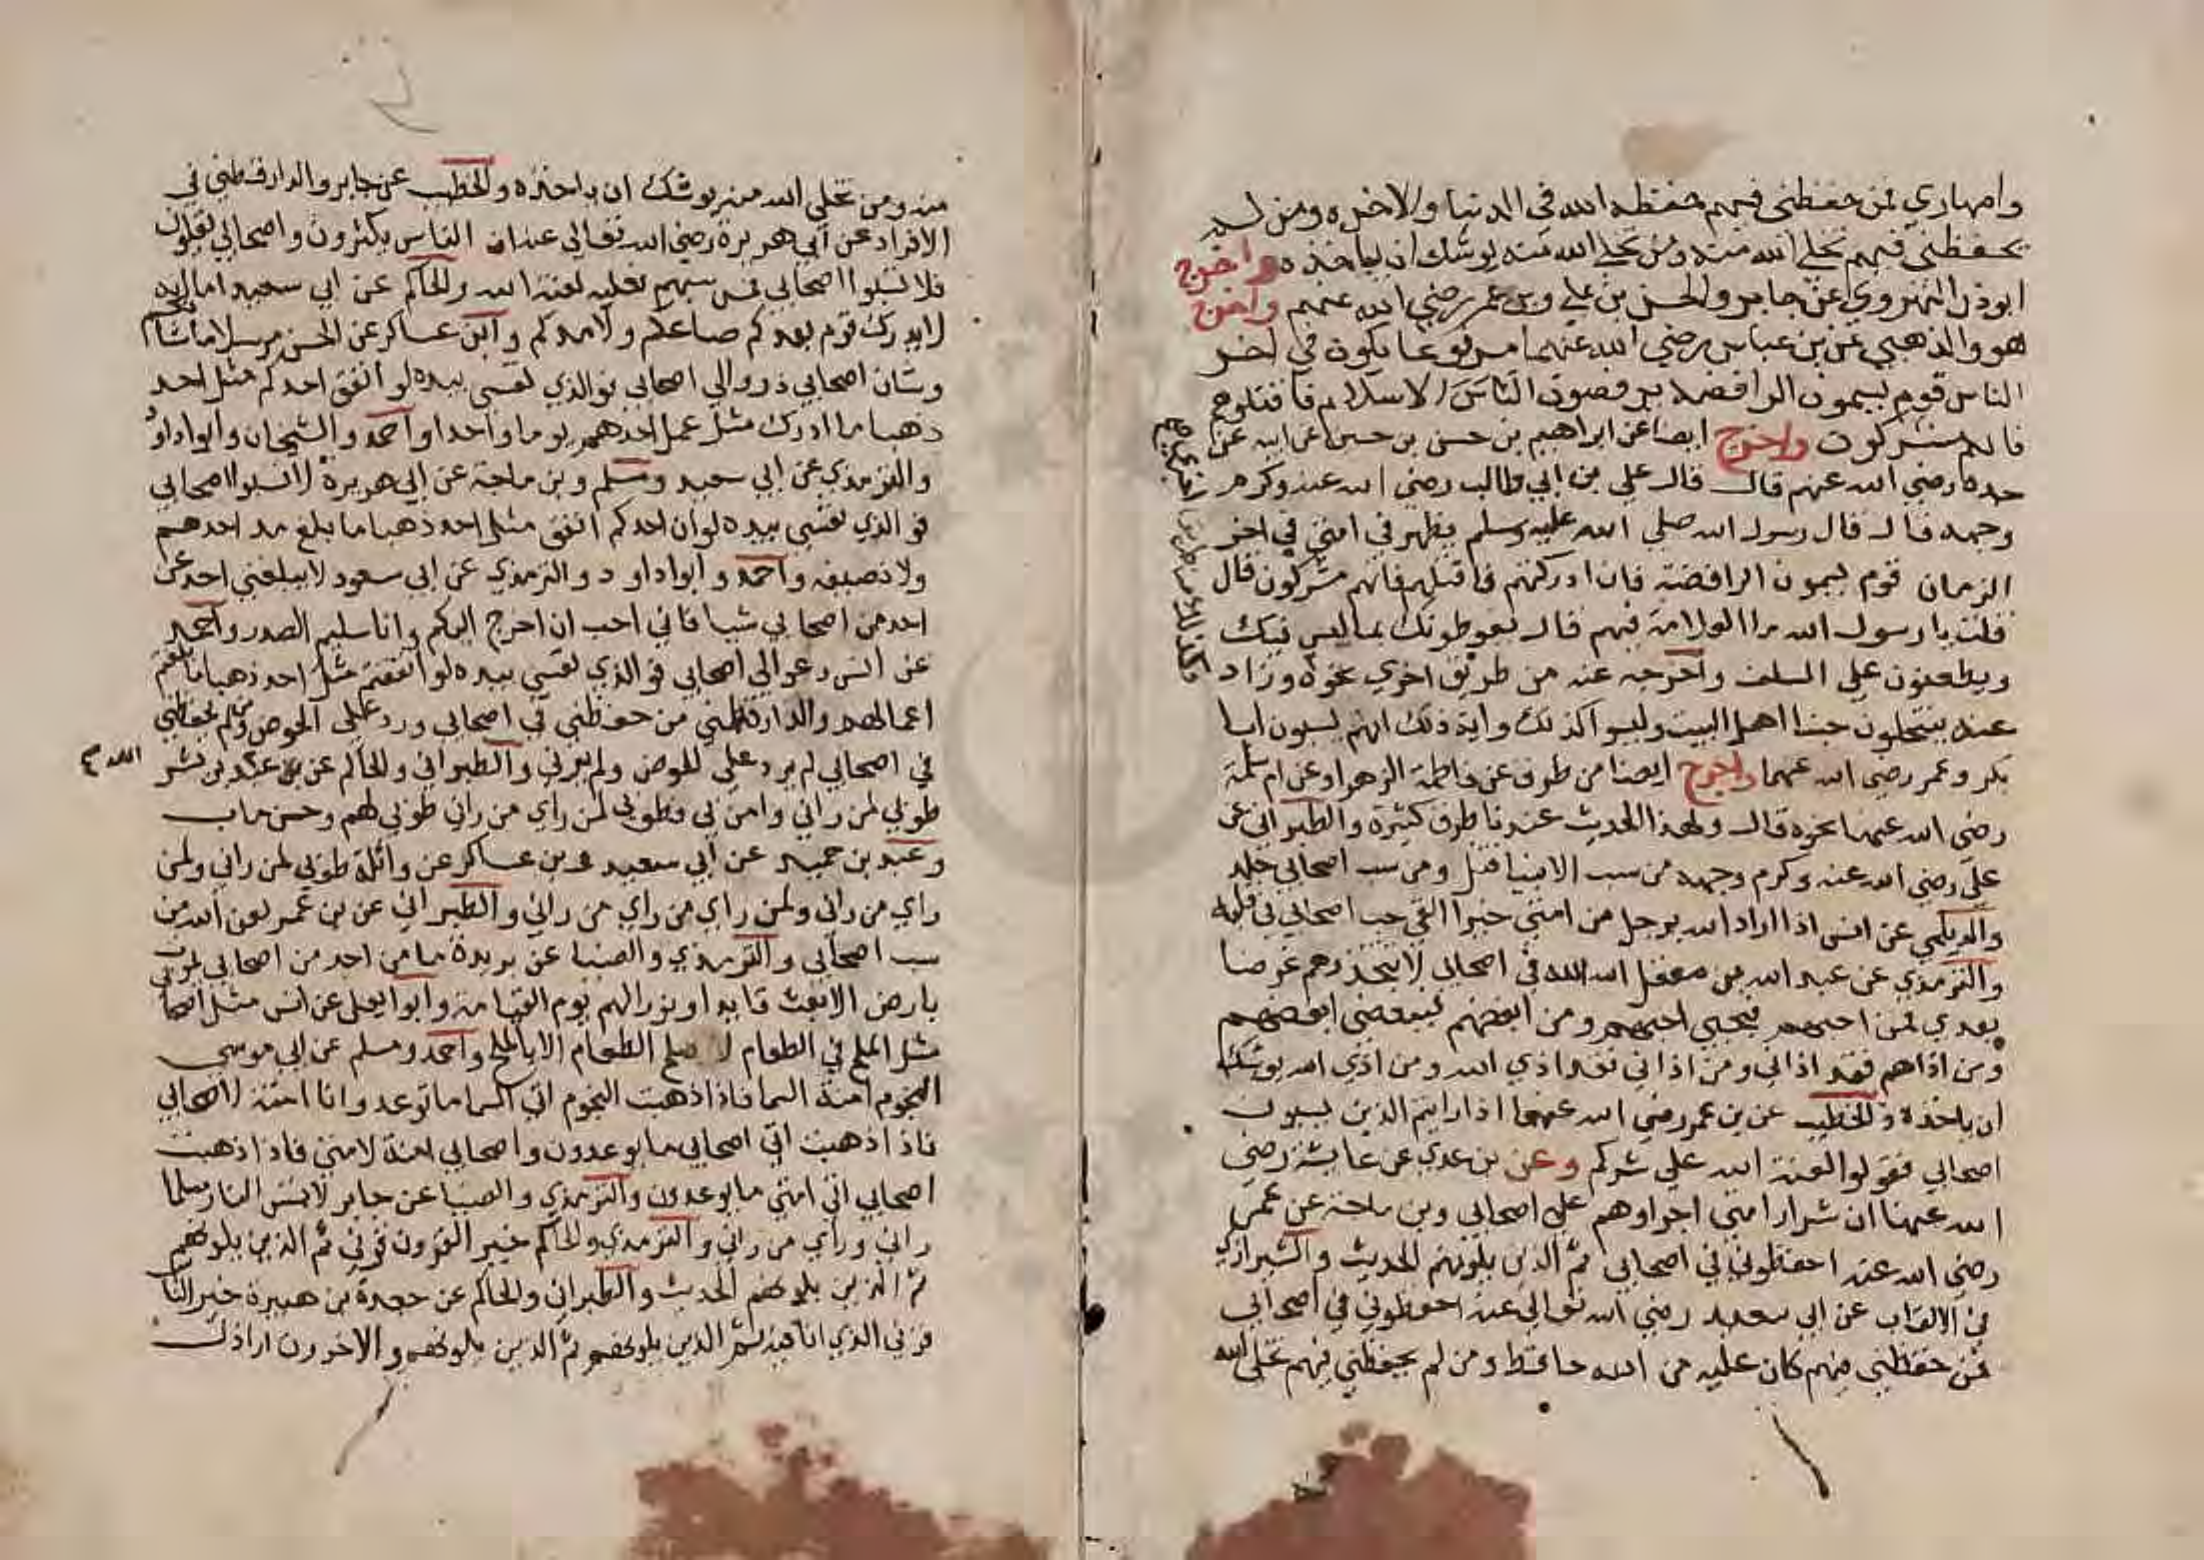 وامهاري فمن حفظني فيهم حفظه الله في الدنيا والاخره ومن لم
يحفظني فيهم تخلي الله منه ومن تخلي الله منه يوشك ان ياخذه واخرج
ابوذر الهروي عن جابر والحسن بن علي وبن عمر رضي الله عنهم واخرج
هو والذهبي عن بن عباس رضي الله عنهما مرفوعا يكون في اخر
الناس قوم يسمون الرافضه يرفضون الاسلام فاقتلوهم
فانهم مشركون واخرج ايضا عن ابراهيم بن حسن بن حسين عن ابيه عن
جده رضي الله عنهم قال قال علي بن ابي طالب رضي الله عنه وكرم
وجهه قال قال رسول الله صلي الله عليه وسلم يظهر في امتي في اخر
الزمان قوم يسمون الرافضة فان ادركتهم فاقتلهم فانهم مشركون قال
قلت يا رسول الله ما العلامة فيهم قال يفرطونك بما ليس فيك
ويطعنون علي السلف واخرجه عنه من طريق اخري نحوه وزاد
عنه ينتحلون حبنا اهل البيت وليسوا كذلك واية ذلك انهم يسبون ابا
بكر وعمر رضي الله عنهما واخرج ايضا من طرق عن فاطمة الزهرا وعن ام سلمة
رضي الله عنهما نحوه قال ولهذا الحديث عندنا طرق كثيرة والطبراني عن
علي رضي الله عنه وكرم وجهه من سب الانبيا قتل ومن سب اصحابي جلد
والديلمي عن انس اذا اراد الله برجل من امتي خيرا القي حب اصحابي في قلبه
والترمذي عن عبد الله بن مغفل الله الله في اصحابي لا تتخذوهم غرضا
بعدي فمن احبهم فبحبي احبهم ومن ابغضهم فببغضي ابغضهم
ومن اذاهم فقد اذاني ومن اذاني فقد اذي الله ومن اذي الله يوشك
ان ياخذه والخطيب عن بن عمر رضي الله عنهما اذا رايتم الذين يسبون
اصحابي فقولوا لعنة الله علي شركم وعن بن عدي عن عايشة رضي
الله عنها ان شرار امتي اجراوهم علي اصحابي وبن ماجة عن عمر
رضي الله عنه احفظوني في اصحابي ثم الذين يلونهم الحديث والشيرازي
في الالقاب عن ابي سعيد رضي الله تعالي عنه احفظوني في اصحابي
فمن حفظني فيهم كان عليه من الله حافظ ومن لم يحفظني فيهم تخلي الله
منه ومن تخلي الله منه يوشك ان ياخذه والخطيب عن جابر والدارقطني في
الافراد عن ابي هريرة رضي الله تعالي عنه ان الناس يكثرون واصحابي يقلون
فلا تسبوا اصحابي فمن سبهم فعليه لعنة الله والحاكم عن ابي سعيد اما انه
لا يدرك قوم بعدكم صاعكم ولا مدكم وابن عساكر عن الحسن مرسلا ما شانكم
وشان اصحابي ذروا لي اصحابي فوالذي نفسي بيده لو انفق احدكم مثل احد
ذهبا ما ادرك مثل عمل احدهم يوما واحدا واحمد والشيخان وابو داود
والترمذي عن ابي سعيد ومسلم وبن ماجة عن ابي هريرة لا تسبوا اصحابي
فوالذي نفسي بيده لو ان احدكم انفق مثل احد ذهبا ما بلغ مد احدهم
ولا نصيفه واحمد وابو داود والترمذي عن ابي سعود لا يبلغني احد عن
احد من اصحابي شيا فاني احب ان اخرج اليكم وانا سليم الصدر واحمد
عن انس دعوا لي اصحابي فوالذي نفسي بيده لو انفقتم مثل احد ذهبا ما بلغتم
اعمالهم والدارقطني من حفظني في اصحابي ورد علي الحوض ومن لم يحفظني
في اصحابي لم يرد علي الحوض ولم يرني والطبراني والحاكم عن بن عبد بن بشر
الله
طوبي لمن راني وامن بي وطوبي لمن راي من راني طوبي لهم وحسن ماب
وعبد بن حميد عن ابي سعيد وبن عساكر عن واثلة طوبي لمن راني ولمن
راي من راني ولمن راي من راي من راني والطبراني عن بن عمر لعن الله من
سب اصحابي والترمذي والضيا عن بريدة ما من احد من اصحابي يموت
بارض الا بعث قايدا ونورا لهم يوم القيامة وابو يعلي عن انس مثل اصحابي
مثل الملح في الطعام لا يصلح الطعام الا بالملح واحمد ومسلم عن ابي موسي
النجوم امنة السما فاذا ذهبت النجوم اتي السما ما توعد وانا امنة لاصحابي
فاذا ذهبت اتي اصحابي ما يوعدون واصحابي امنة لامتي فاذا ذهبت
اصحابي اتي امتي ما يوعدون والترمذي والضيا عن جابر لا تمس النار مسلما
راني وراي من راني والترمذي والحاكم خير القرون قرني ثم الذين يلونهم
ثم الذين يلونهم الحديث والطبراني والحاكم عن جعدة بن هبيرة خير الناس
قرني الذي انا فيه ثم الذين يلونهم ثم الذين يلونهم والاخرون اراذل